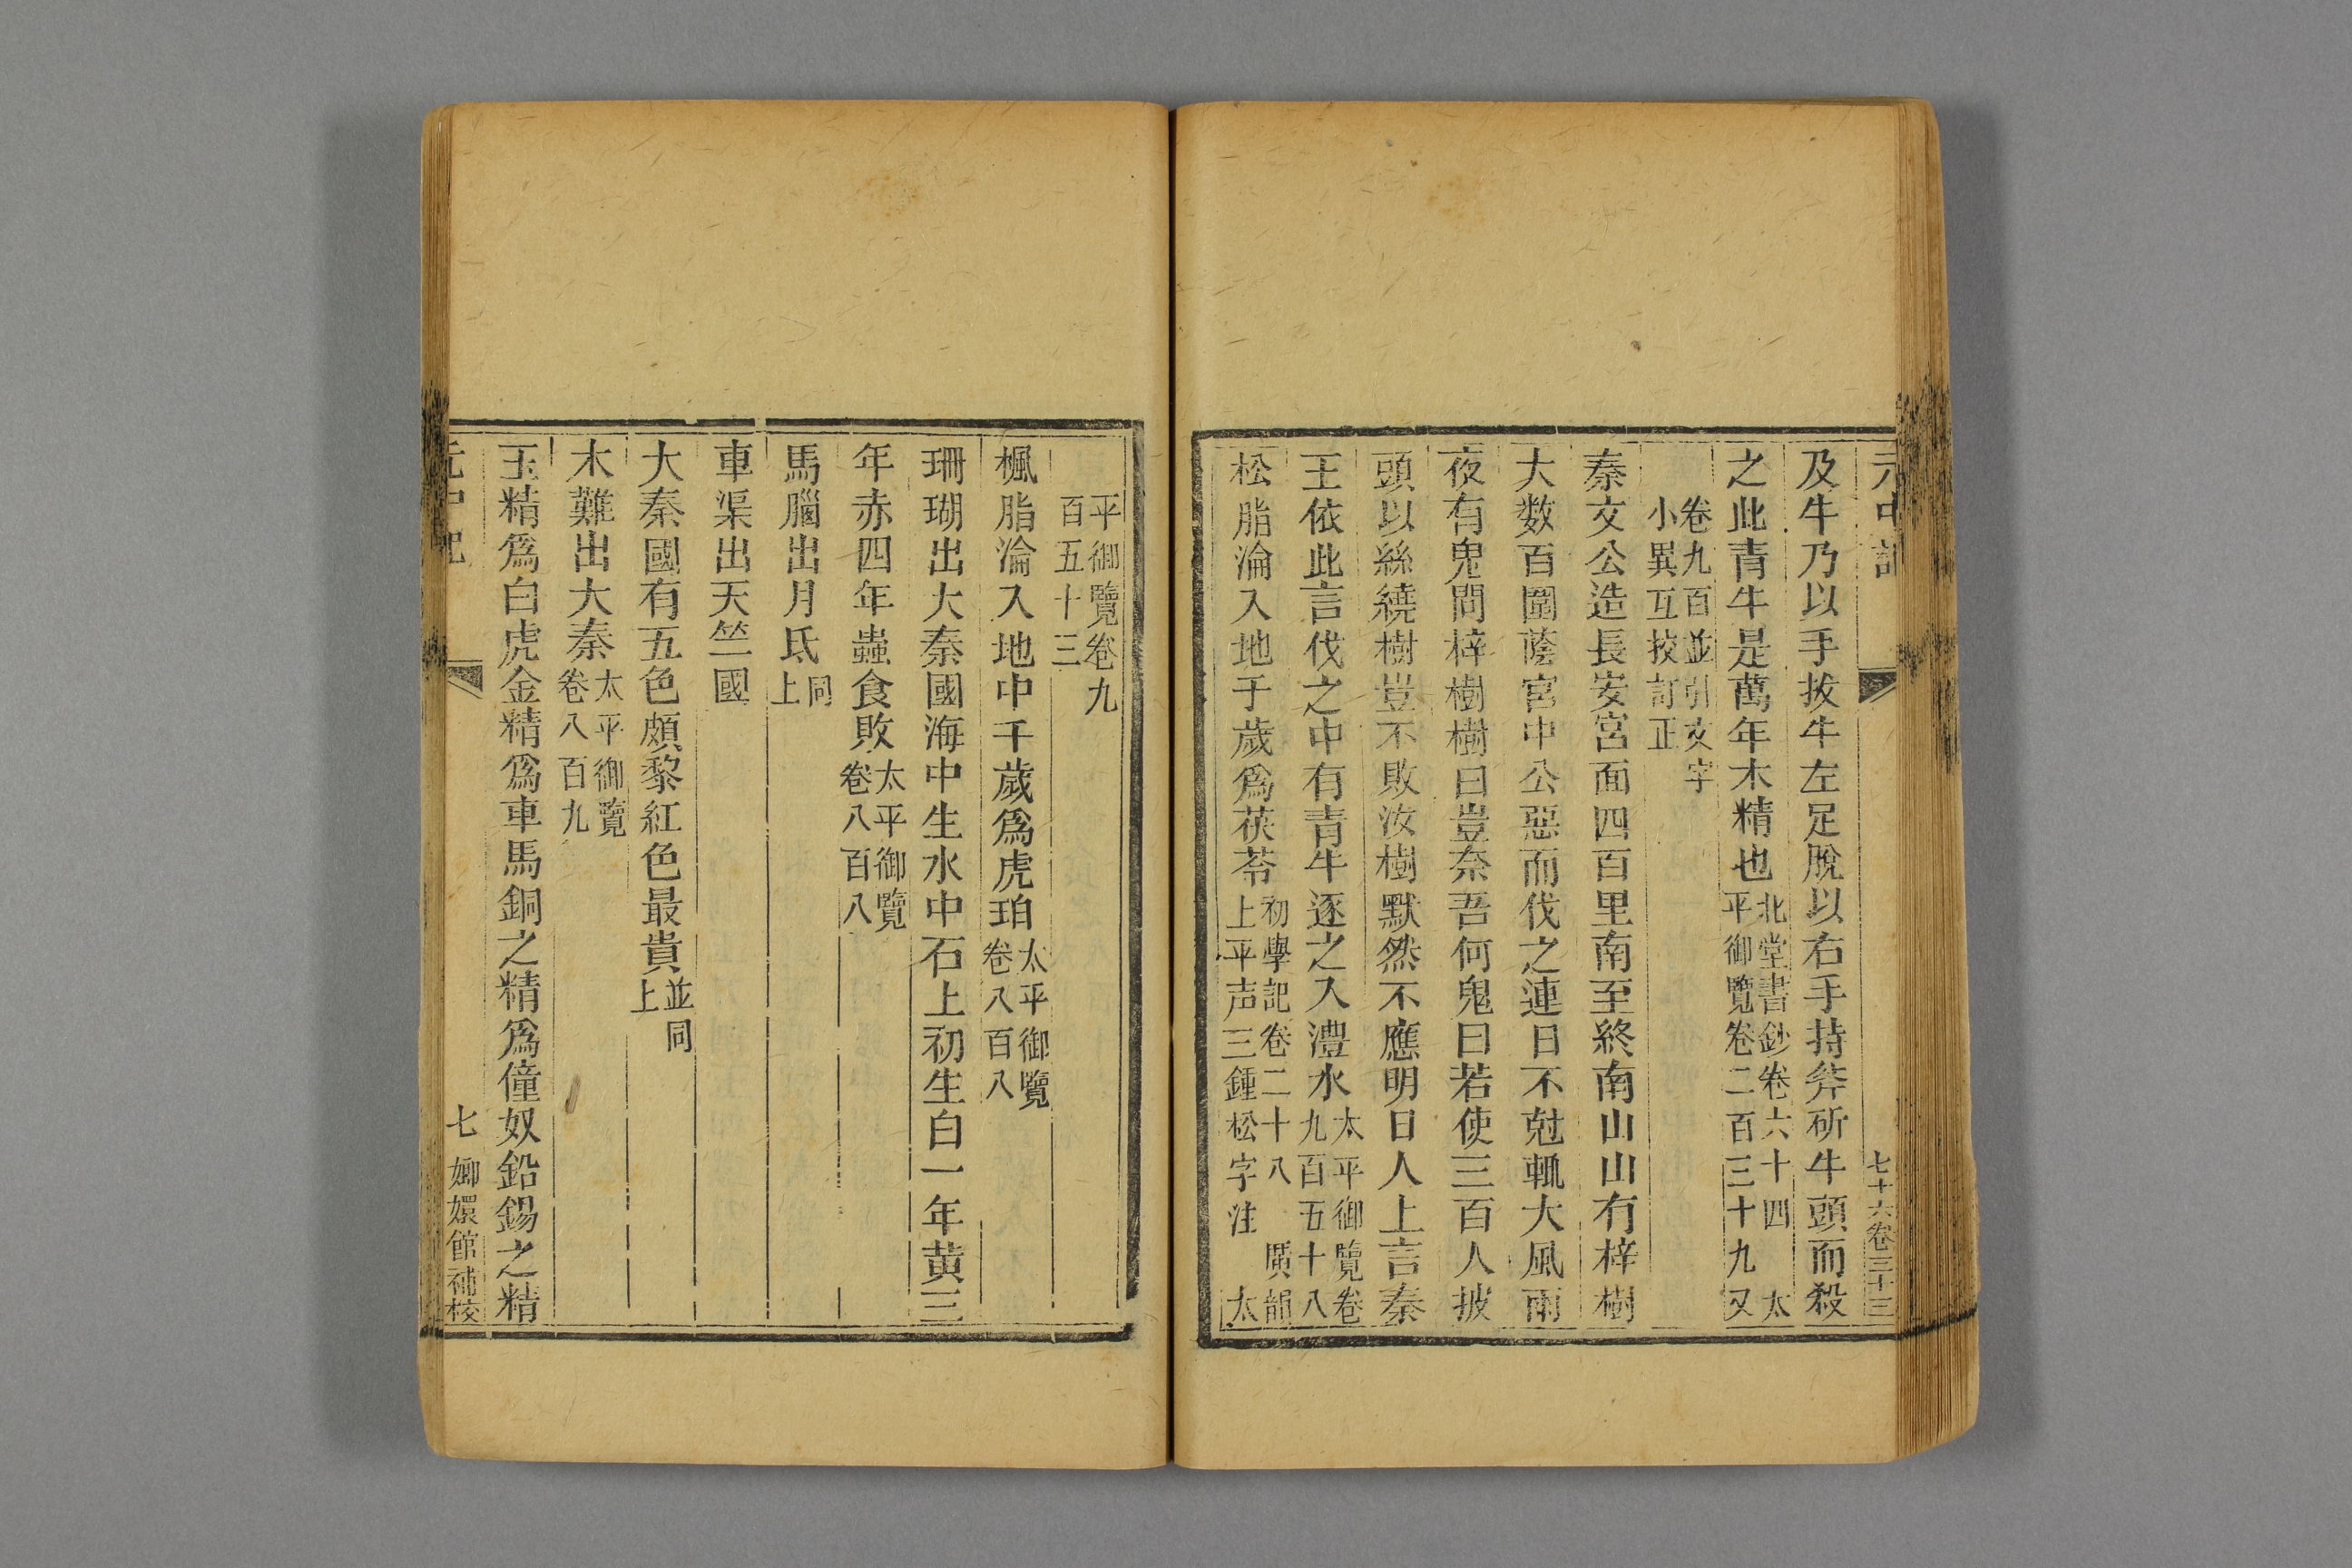 七十六卷三十三
及牛乃以手拔牛左足脫以右手持斧斫牛頭而殺
之此青牛是萬年木精也北堂書鈔卷六十四 太
平御覽卷二百三十九又
卷九百並引文字
小異互挍訂正
秦文公造長安宮面四百里南至終南山山有梓樹
大数百圍蔭宮中公惡而伐之連日不尅輒大風雨
夜有鬼問梓樹樹曰豈奈吾何鬼曰若使三百人披
頭以絲繞樹豈不敗汝樹默然不應明日人上言秦
王依此言伐之中有青牛逐之入澧水太平御覽卷
九百五十八
松脂淪入地千歲爲茯苓初學記卷二十八 廣韻
上平声三鍾松字注 太
平御覽卷九
百五十三
楓脂淪入地中千歲爲虎珀太平御覽
卷八百八
珊瑚出大秦國海中生水中石上初生白一年黃三
年赤四年蟲食敗太平御覽
卷八百八
馬腦出月氏同
上
車渠出天竺國
大秦國有五色頗黎紅色最貴並同
上
木難出大秦太平御覽
卷八百九
玉精爲白虎金精爲車馬銅之精爲僮奴鉛錫之精
七 嫏嬛館補校